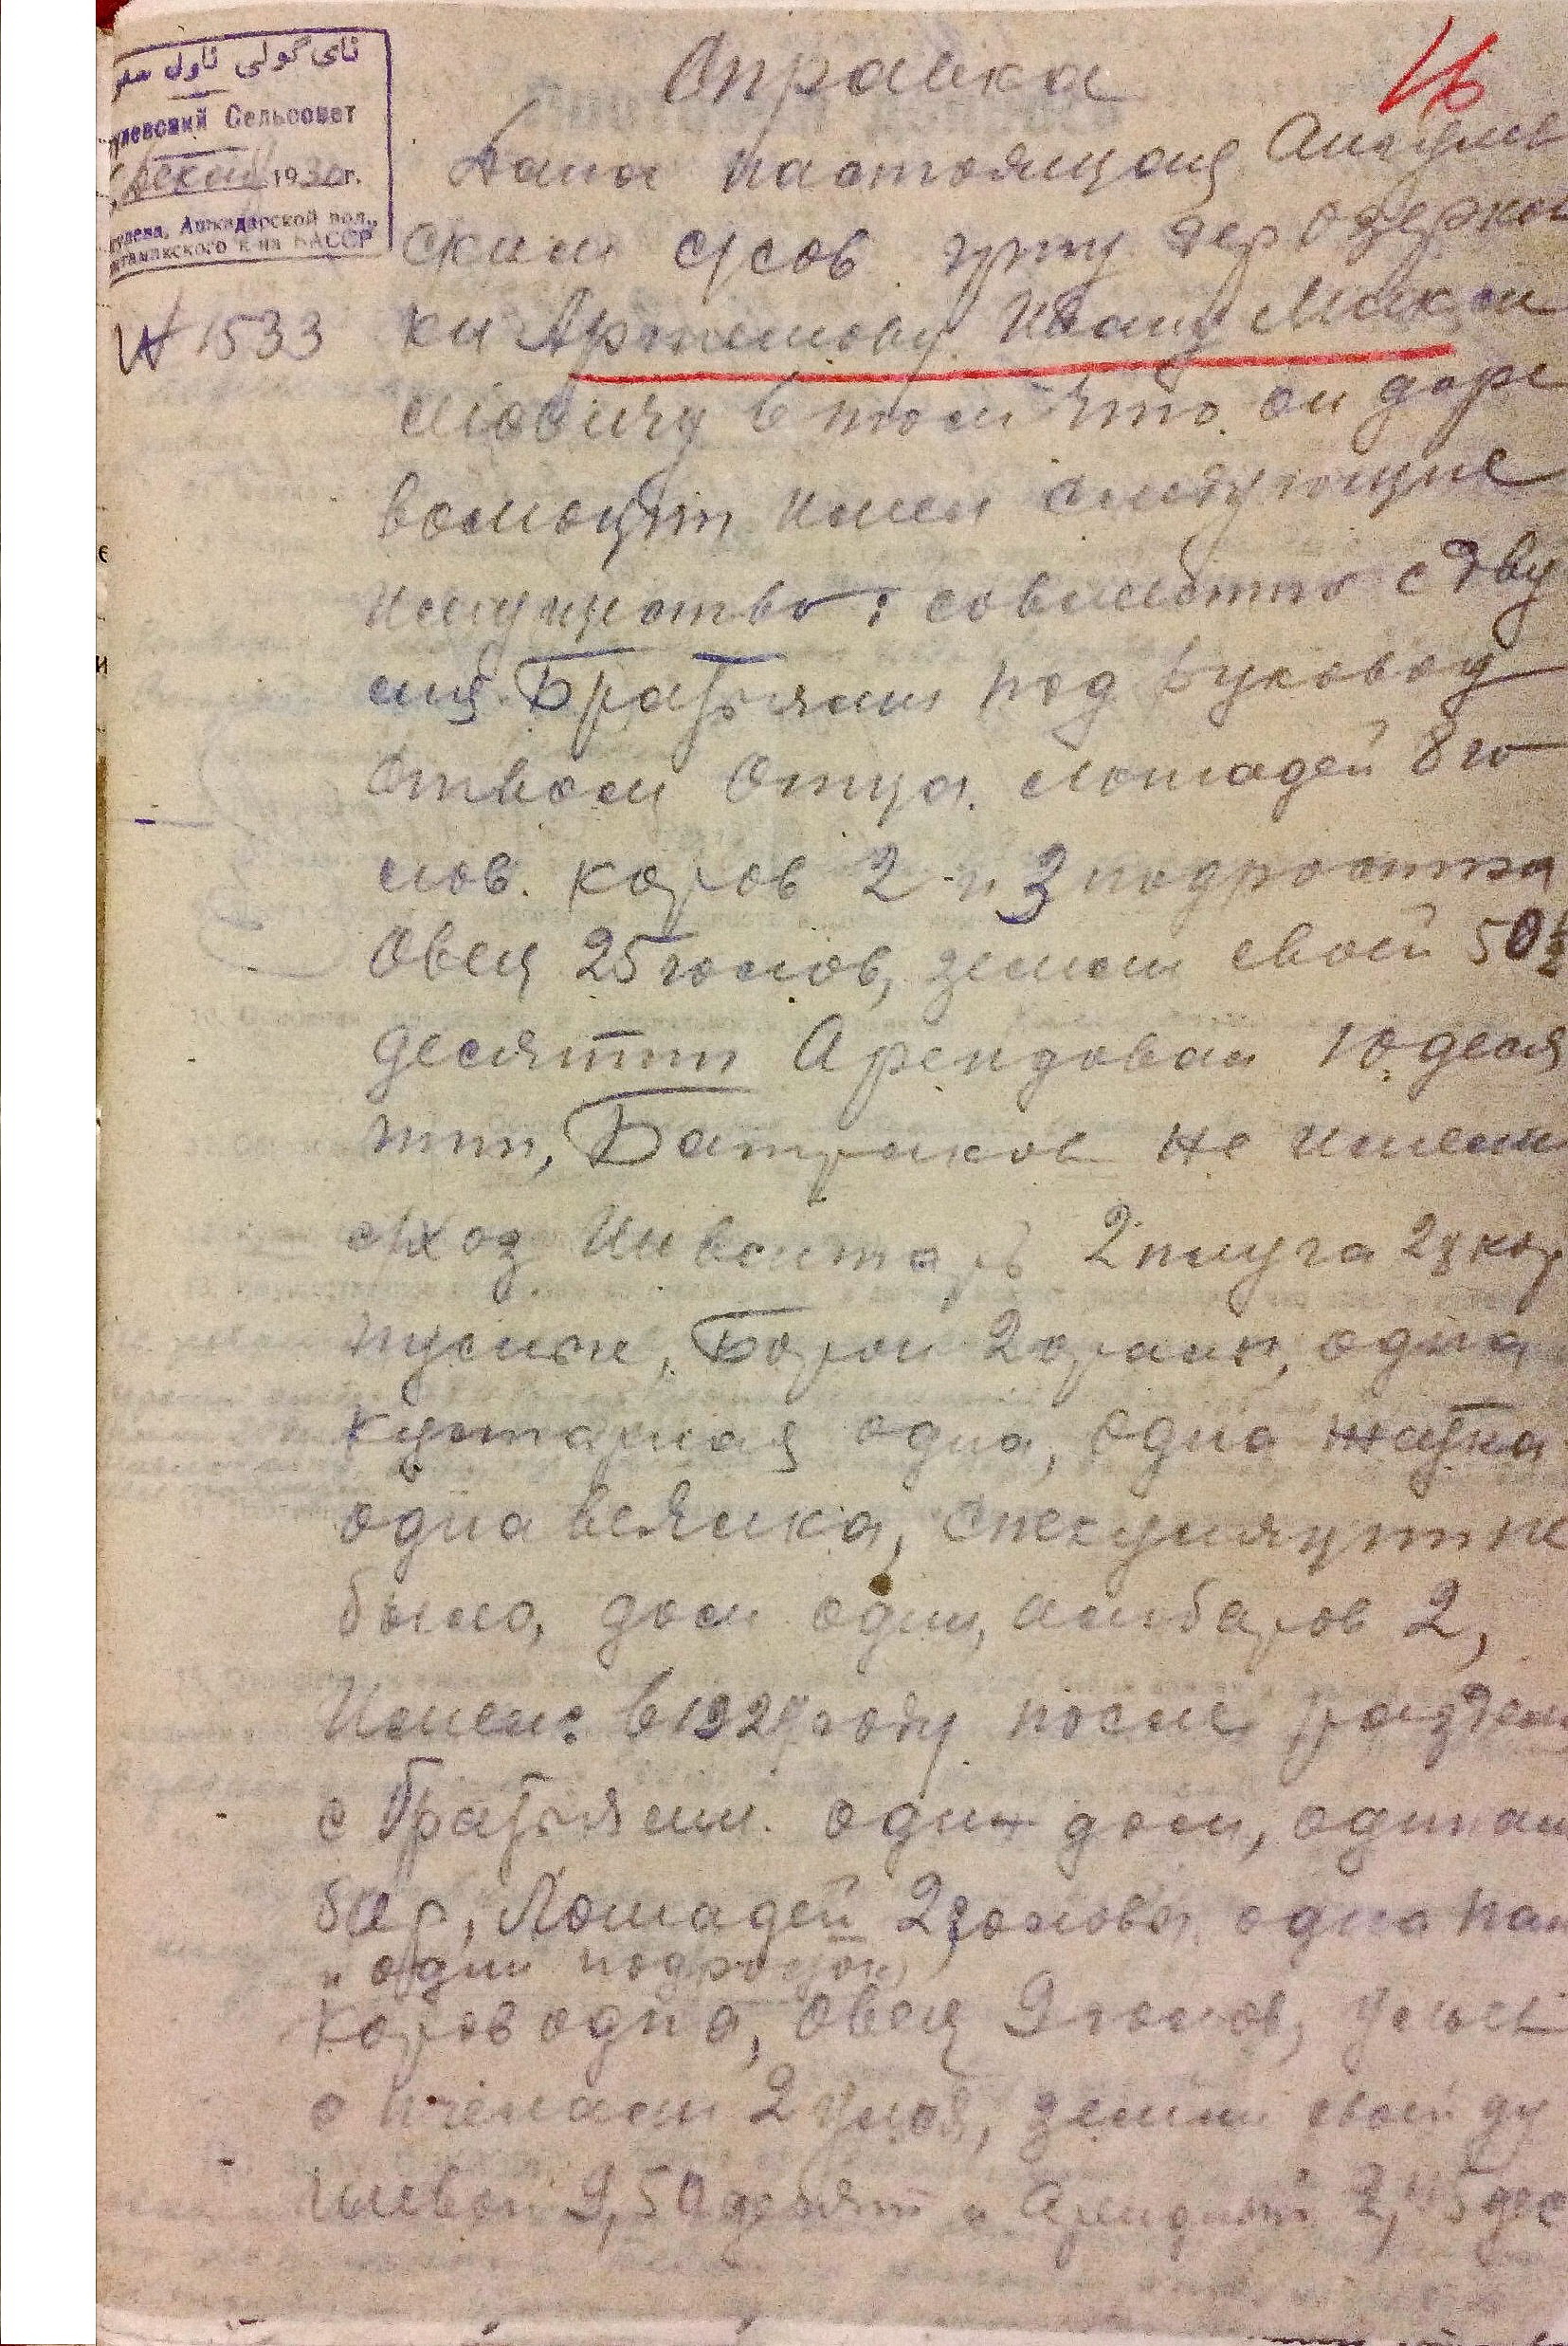 Справка
46
ئاي گولى ئاول
гулевский Сельсовет
декаб 1930 г.
гулева, Ашкадарской вол.,
Стерлитамакского к-на БАССР
№ 1533
Дана настоящая Аигулев
ским с/сов гр-ну дер Озерков
ки Артемову Ивану Макси
мовичу в том что он дорe
волюцти имел следующие
имущество: совместно с дву
мя Братьями под руковод
ством Отца. лошадей 8 го
лов. коров 2 и 3 подростка
Овец 25 голов, земли своей 50
десятин Арендовал 10 деся
тин, Батраков не имели
с/хоз Инвентарь 2 плуга 2х кор
пусных, Борон 2 одна
кустарная одна, одна жатка
одна веялка, спекуляции не
было, дом один, амбаров 2,
Имел: в 1929 году после раздела
с братьями. один дом, один ам
бар, Лошадей 2 головы одна
и один подросток
Коров одна, Овец 9 голов, ульи
с пчелами 2 улья, земли своей ду
шевой 9,50 десят и Арендной 2,45 дес